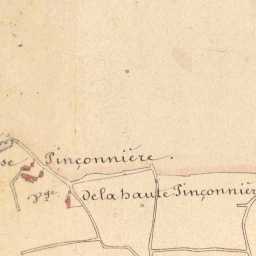 se Pinçonnière.
Vge. de la haute Pinçonnièr